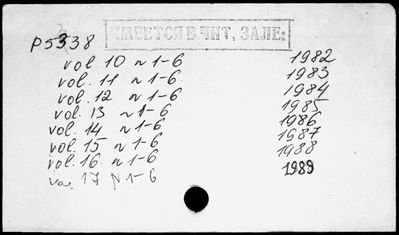 ИМЕЕТСЯ В ЧИТ. ЗАЛЕ:
P5338
vol. 10 n 1-6 1982
vol. 11 n 1-6 1983
vol. 12 n 1-6 1984
vol. 13 n 1-6 1985
vol. 14 n 1-6 1986
vol. 15 n 1-6 1987
vol. 16. n 1-6 1988
vol. 17 N 1-6 1989